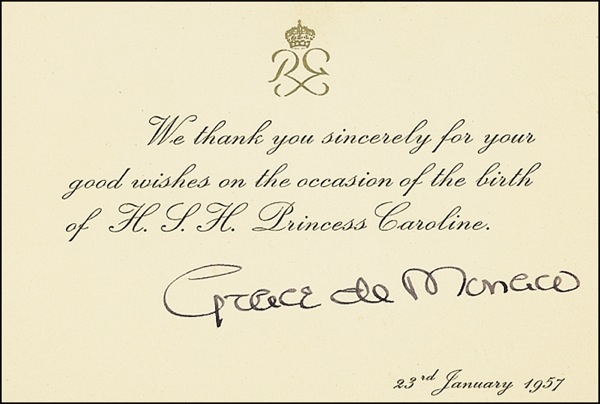 RG
We thank you sincerely for your
good wishes on the occasion of the birth
of H. S. H. Princess Caroline.
Grace de Monaco
23rd January 1957